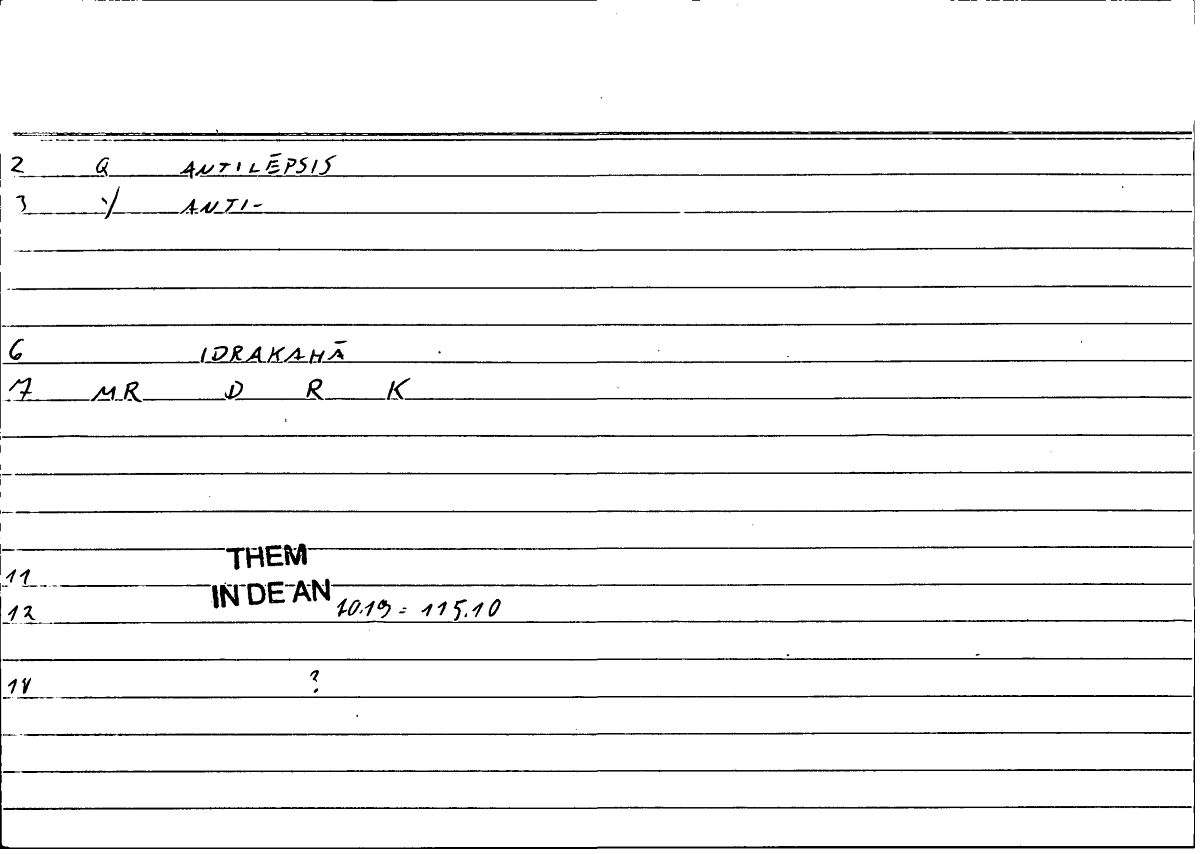 2 Q ANTILĒPSIS
3 √ ANTI-
6 IDRAKAHĀ
7 MR D R K
THEM
11
IN DE AN
12 10.19 = 115.10
14 ?